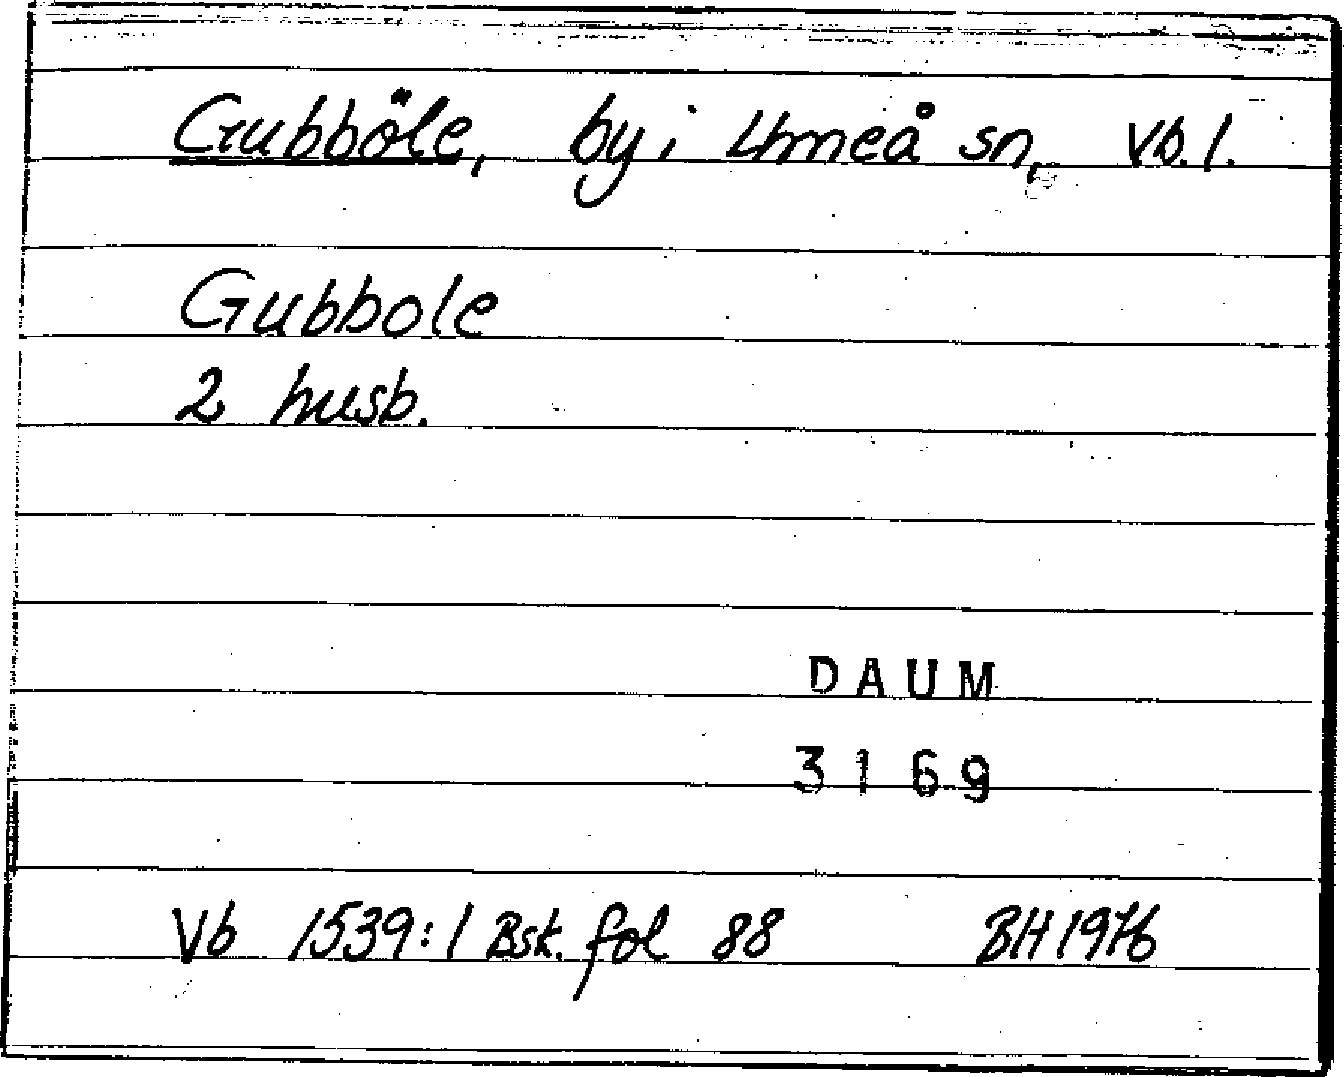 Gubböle, by i Umeå sn, Vb. l.
Gubbole
2 husb.
DAUM
3169
Vb 1539:1 Bsk. fol 88 BH 1976